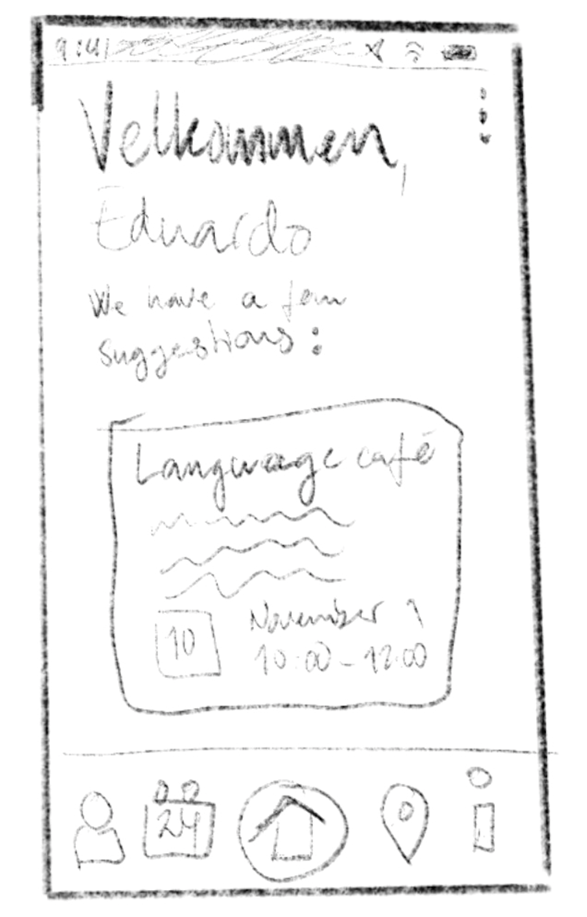 9:41
Velkommen,
Eduardo
We have a few
suggestions:
Language café
10
November 1
10:00-12:00
24